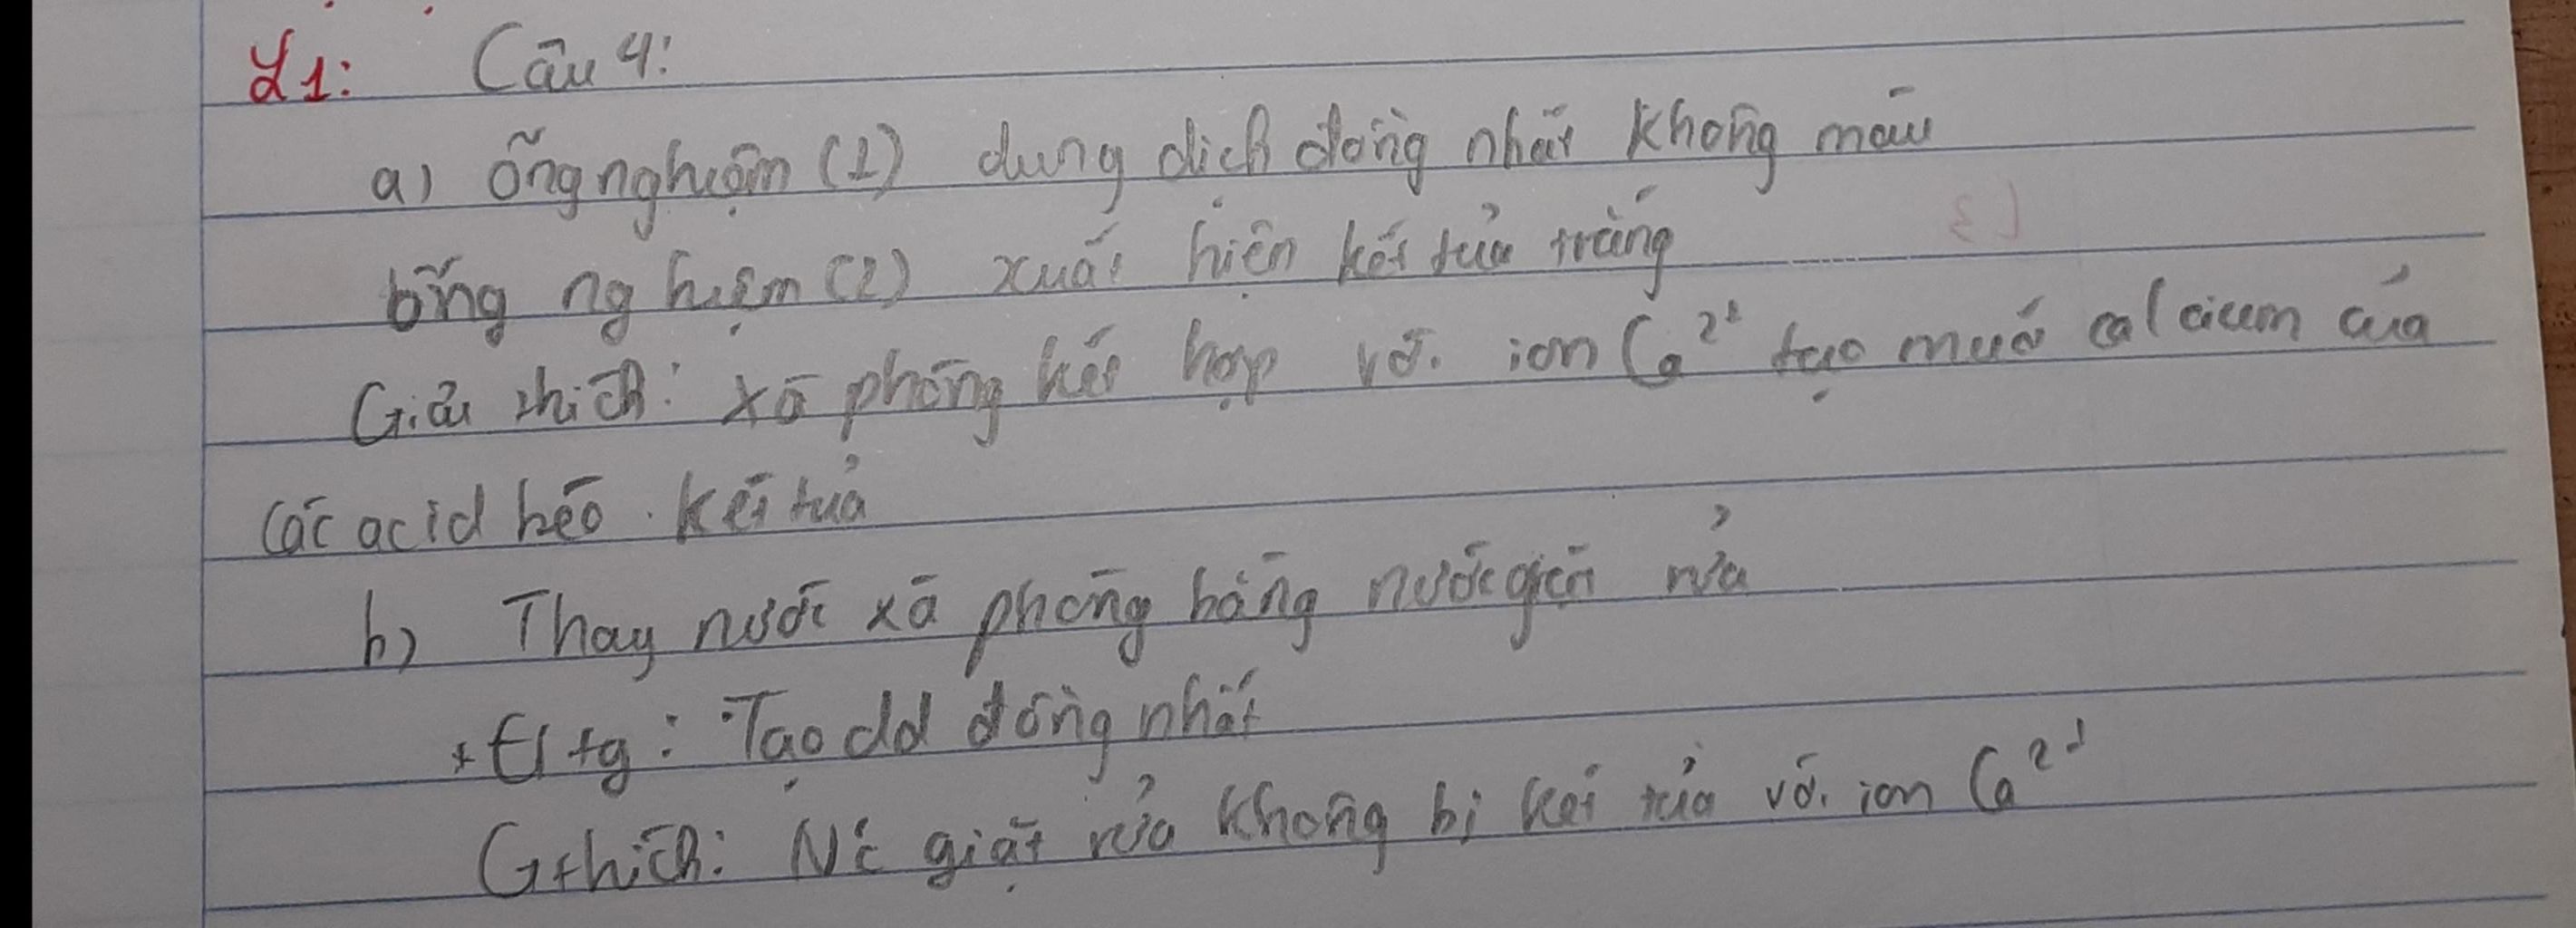 L1: Câu 4:
a) ống nghiệm (1) dung dịch đồng nhất không màu
ống nghiệm (2) xuất hiện kết tủa trắng
Giải thích: xà phòng kết hợp với ion Ca²⁺ tạo muối calcium của
các acid béo. Kết tủa
b) Thay nước xà phòng bằng nước giặt rửa
+ H tg: Tạo dd đồng nhất
G thích: Nc giặt rửa không bị kết tủa với ion Ca²⁺